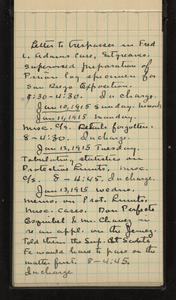 Letter to trespasser in Fred
L. Adams case, Sitgreaves.
Supervised preparation of
Pinon log specimen for
San Diego Exposition.
8:30-4:30. In charge.
Jan. 10, 1915 Sunday.
Jan. 11, 1915 Monday.
Misc. c/s. Details forgotten.
8-4:30. In charge.
Jan. 12, 1915 Tuesday.
Tabulating statistics on
Protection Permits, misc.
c/s. 8-4:45. In charge.
Jan. 13, 1915 Wedns.
Memo. on Prot. Permits.
Misc. Cases. Don Perfecto
Esquibel & Mr. Chavez in
re an appl. on the Jemez.
Told them the Sup. at Santa
Fe would have to pass on the
matter first. 8-4:45.
In charge